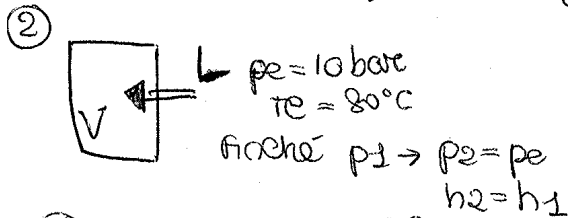 2
pe = 10 bar
Te = 80°C
V
finché p1 → p2 = pe
h2 = h1